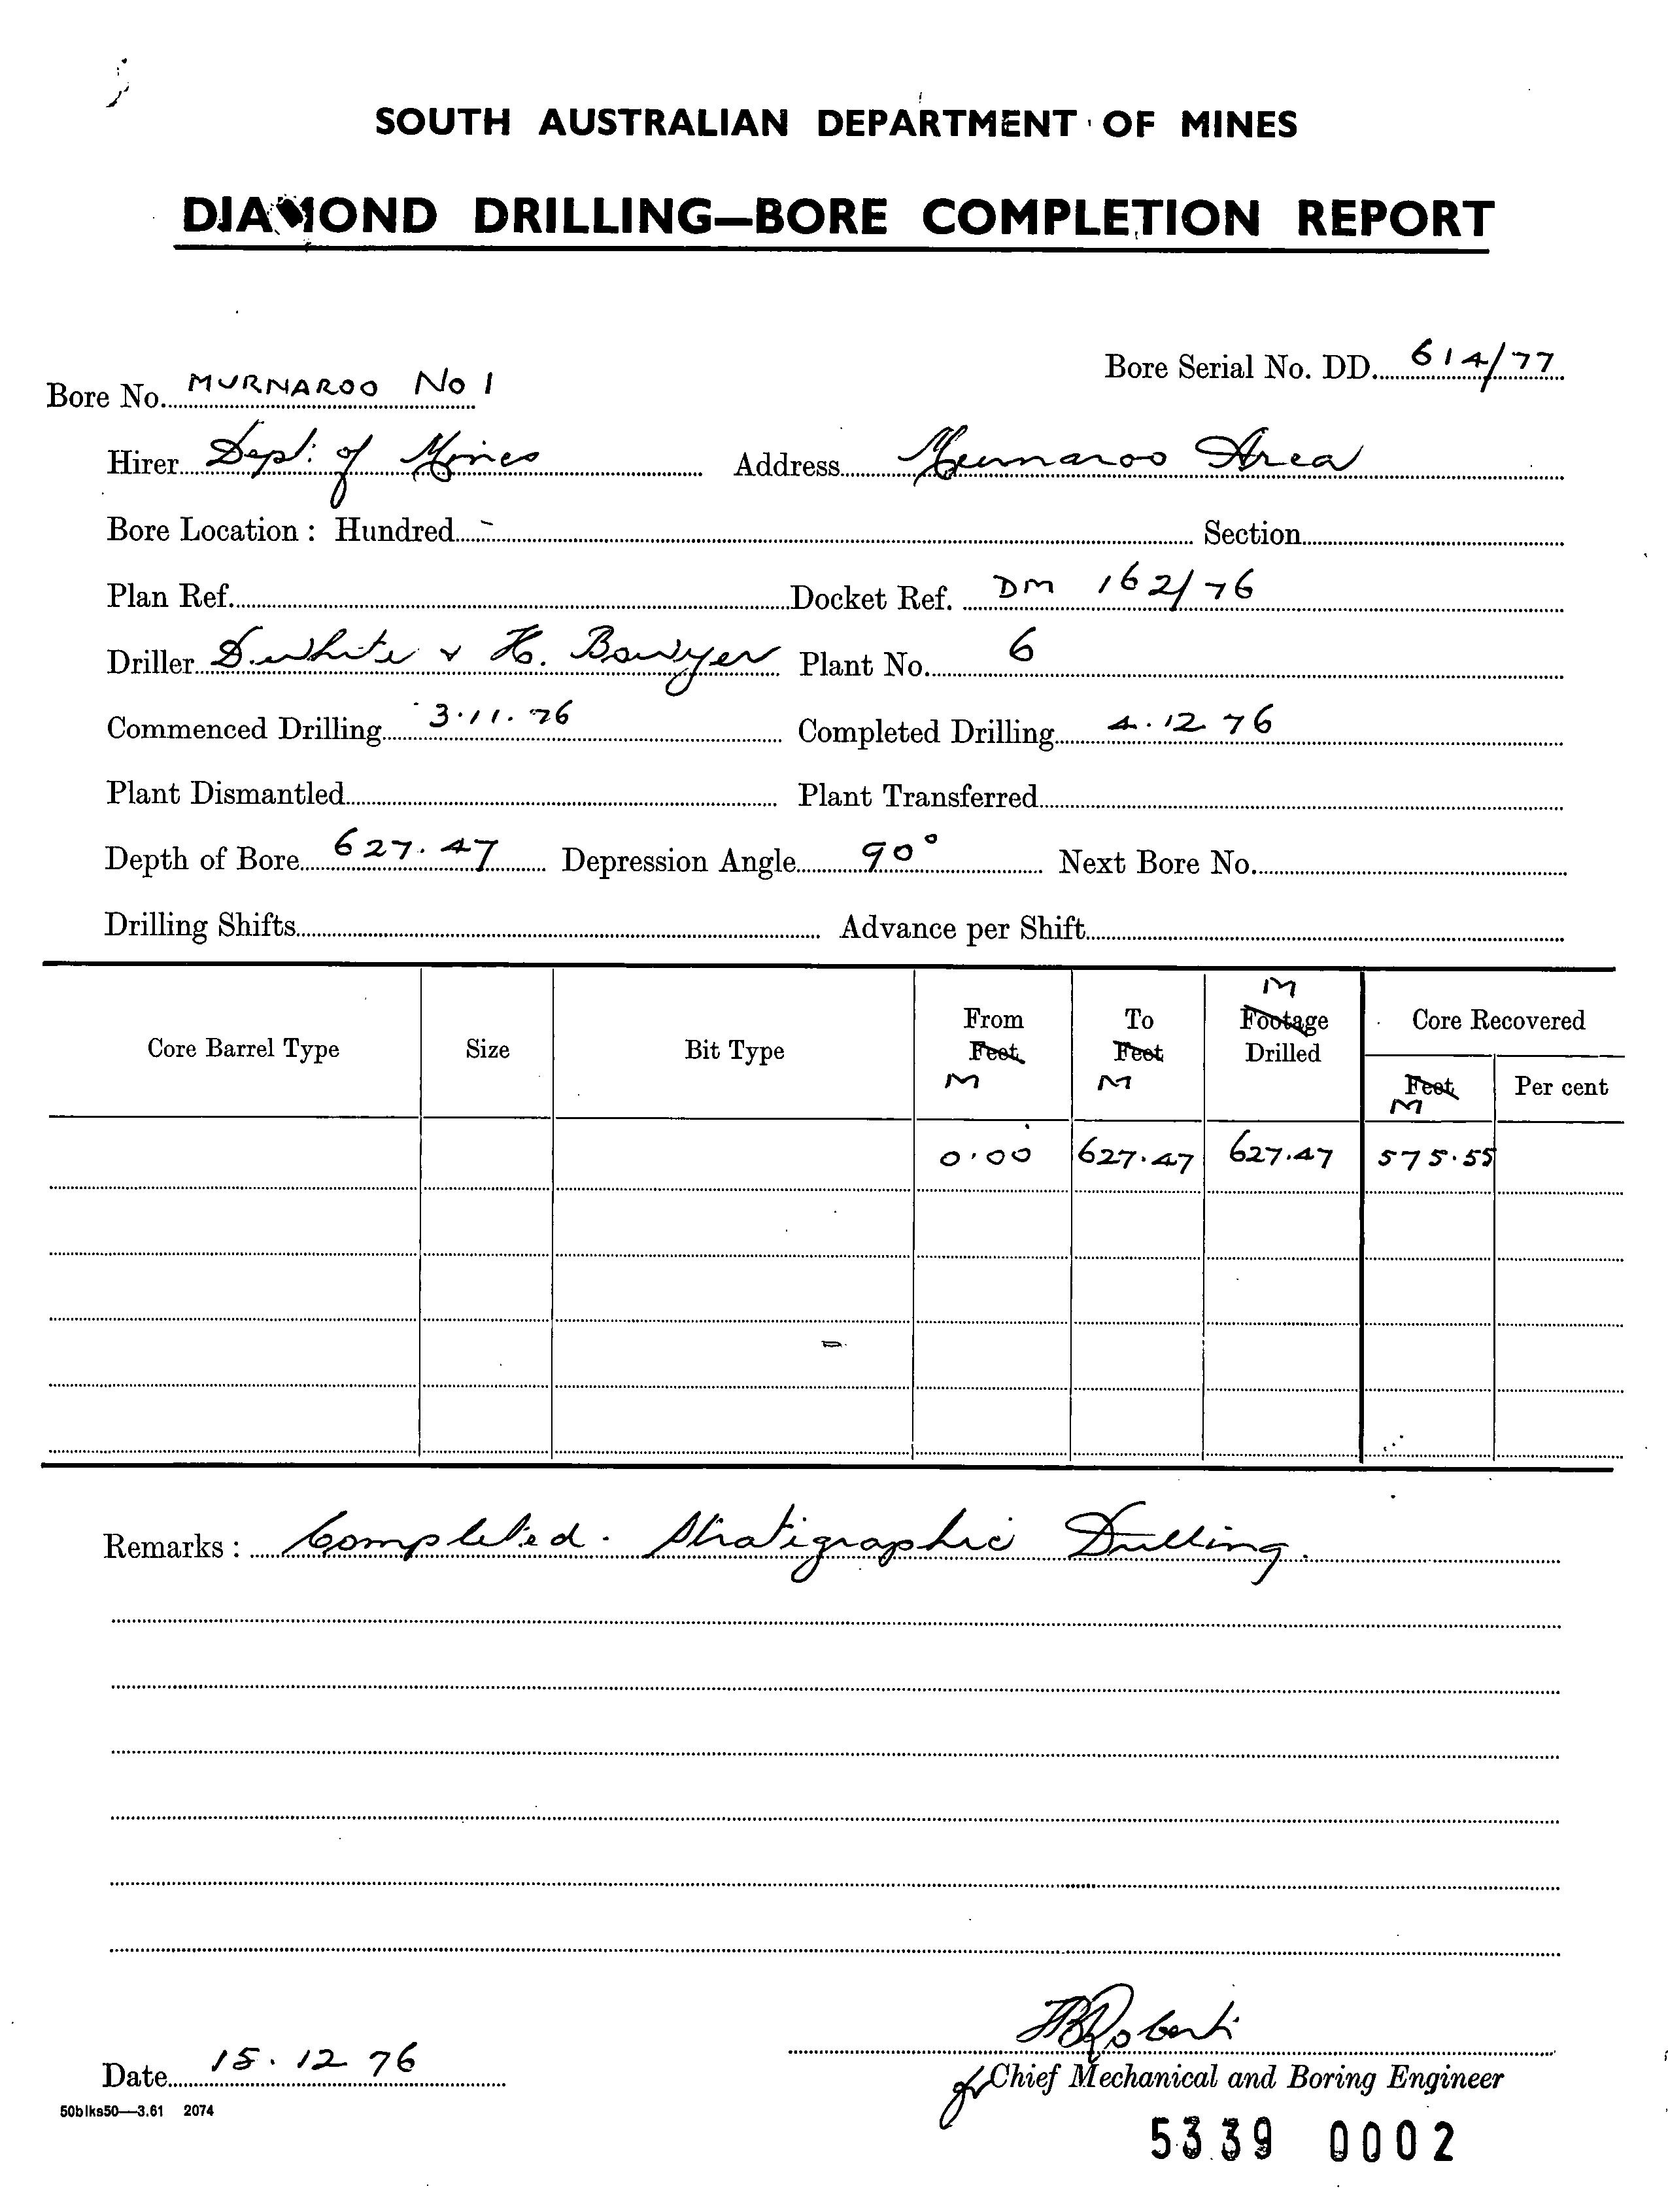 SOUTH AUSTRALIAN DEPARTMENT OF MINES
DIAMOND DRILLING—BORE COMPLETION REPORT
Bore Serial No. DD. 614/77
Bore No. MURNAROO No 1
Hirer Dept. of Mines Address Murnaroo Area
Bore Location : Hundred - Section
Plan Ref. Docket Ref. DM 162/76
Driller D. White & H. Bowyer Plant No. 6
Commenced Drilling 3.11.76 Completed Drilling 4.12 76
Plant Dismantled Plant Transferred
Depth of Bore 627.47 Depression Angle 90° Next Bore No.
Drilling Shifts Advance per Shift
Core Barrel Type Size Bit Type From Feet M To Feet M M Footage Drilled Core Recovered Feet M Per cent
0.00 627.47 627.47 575.55
Remarks : Completed. Stratigraphic Drilling.
Roberts
Date 15.12 76
for Chief Mechanical and Boring Engineer
50blks50—3.61 2074
5339 0002